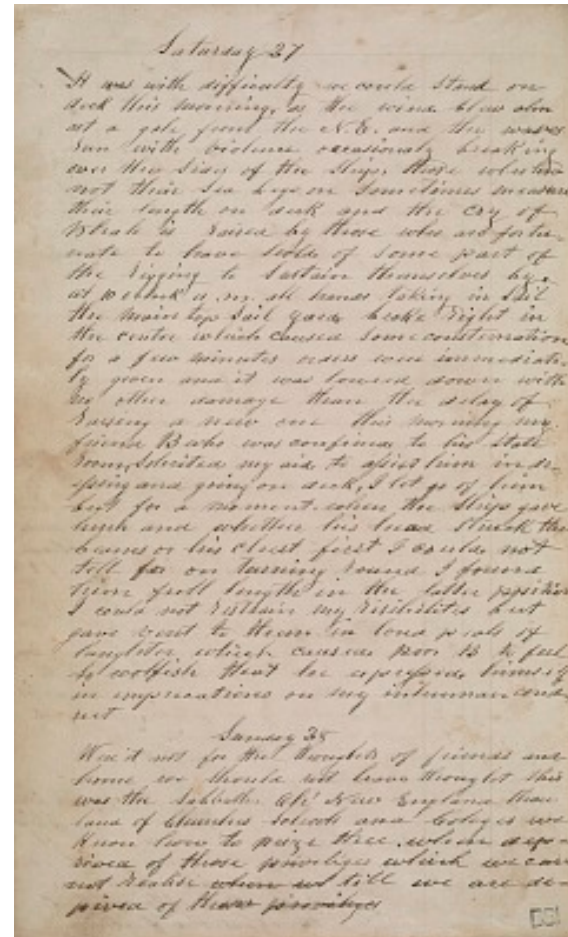 Saturday 27
It was with difficulty we could stand on
deck this morning, as the wind blew alm
ost a gale from the N.E. and the waves
run with violence occasionaly breaking
over the sides of the Ship, those who had
not their sea legs on sometimes measure
their length on deck and the cry of
Whale is raised by those who are fortu-
nate to have hold of some part of
the rigging to sustain themselves by.
at 10 oclock a.m. all hands taking in Sail
the main top sail yard broke right in
the centre which caused some consternation
for a few minutes orders were immediate
ly given and it was lowered down with
no other damage than the delay of
raising a new one this morning my
friend B who was confined to his state
room, solicited my aid to assist him in dre
ssing and going on deck, I let go of him
but for a moment when the Ship gave
lurch and whether his head struck the
beams or his chest first I could not
tell for on turning round I found
him full length in the latter position
I could not restrain my risibilities but
gave vent to them in loud peals of
laughter which caused poor B to feel
so wolfish that he expressed himself
in imprecations on my inhuman cond
uct
Sunday 28
Was it not for the thoughts of friends and
home we should not have thought this
was the Sabbath. Oh! New England thou
land of Churches Schools and Coleges we
know how to prize thee when dep-
rived of those priviliges which we can
not realise when till we are de-
prived of those priviliges